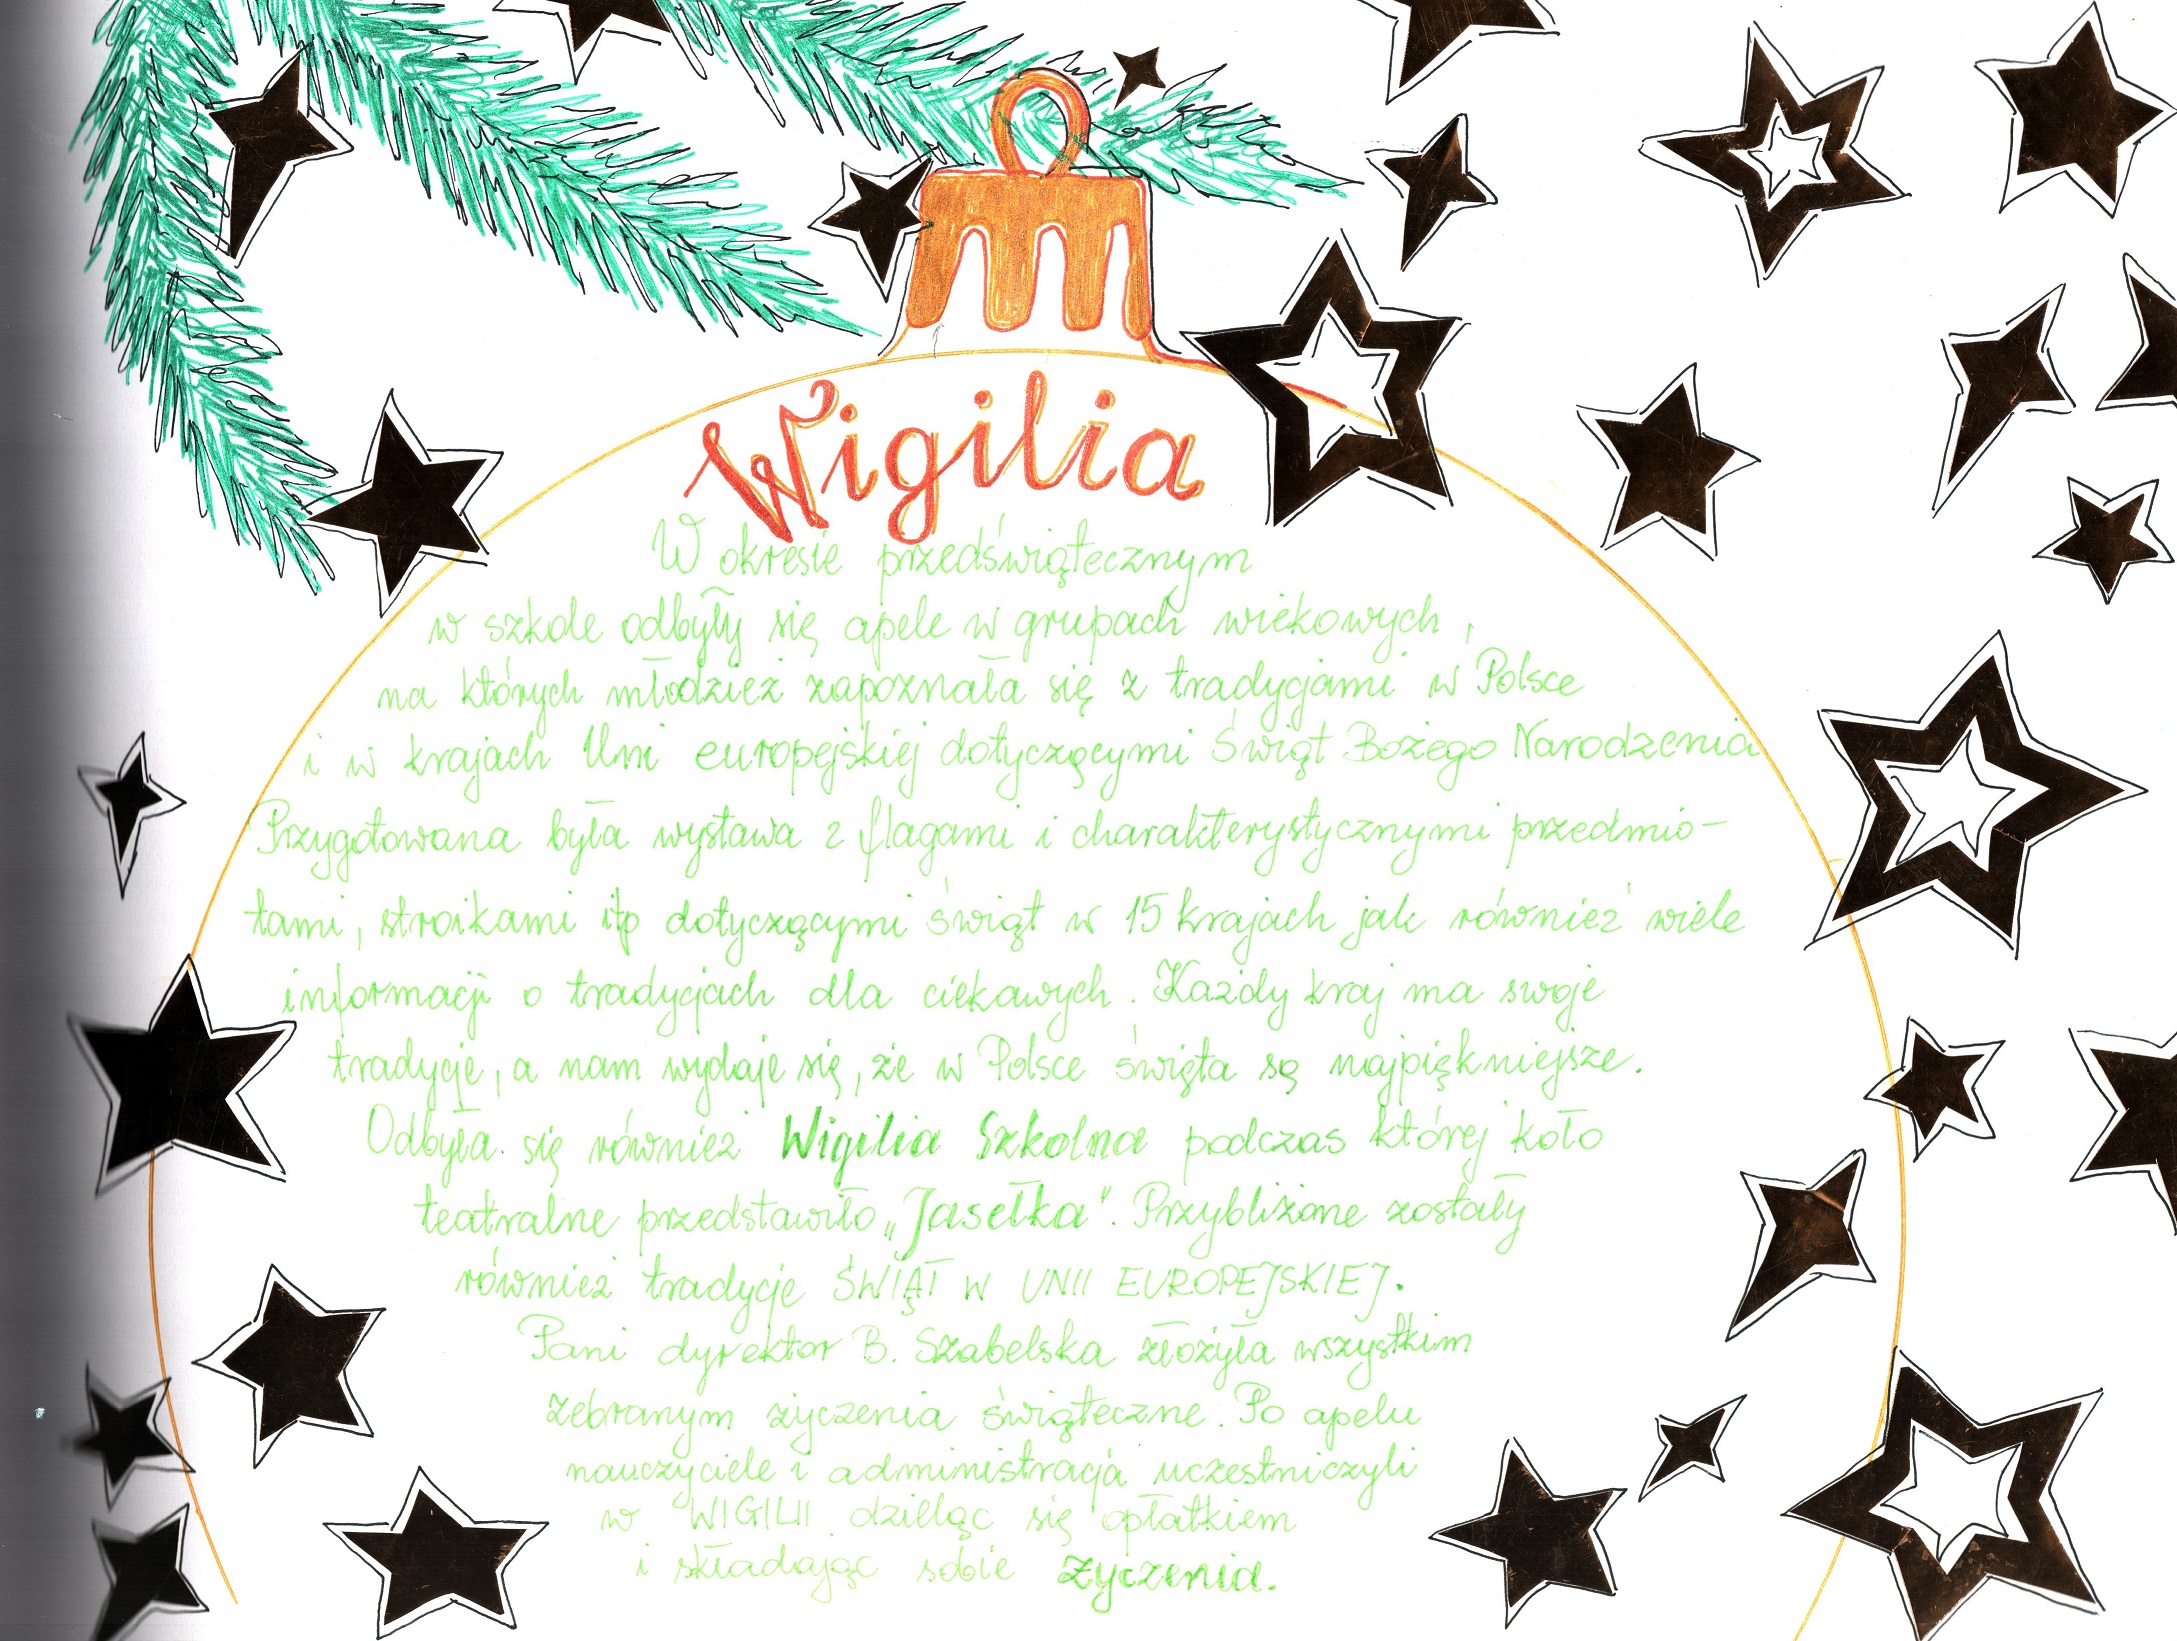 Wigilia
W okresie przedświątecznym
w szkole odbyły się apele w grupach wiekowych,
na których młodzież zapoznała się z tradycjami w Polsce
i w krajach Uni europejskiej dotyczącymi Świąt Bożego Narodzenia
Przygotowana była wystawa z flagami i charakterystycznymi przedmio-
tami, stroikami itp dotyczącymi świąt w 15 krajach jak również wiele
informacji o tradycjach dla ciekawych. Każdy kraj ma swoje
tradycje, a nam wydaje się, że w Polsce święta są najpiękniejsze.
Odbyła się również Wigilia Szkolna podczas której koło
teatralne przedstawiło „Jasełka". Przybliżone zostały
również tradycje ŚWIĄT W UNII EUROPEJSKIEJ.
Pani dyrektor B. Szabelska złożyła wszystkim
zebranym życzenia świąteczne. Po apelu
nauczyciele i administracja uczestniczyli
w WIGILII dzieląc się opłatkiem
i składając sobie życzenia.